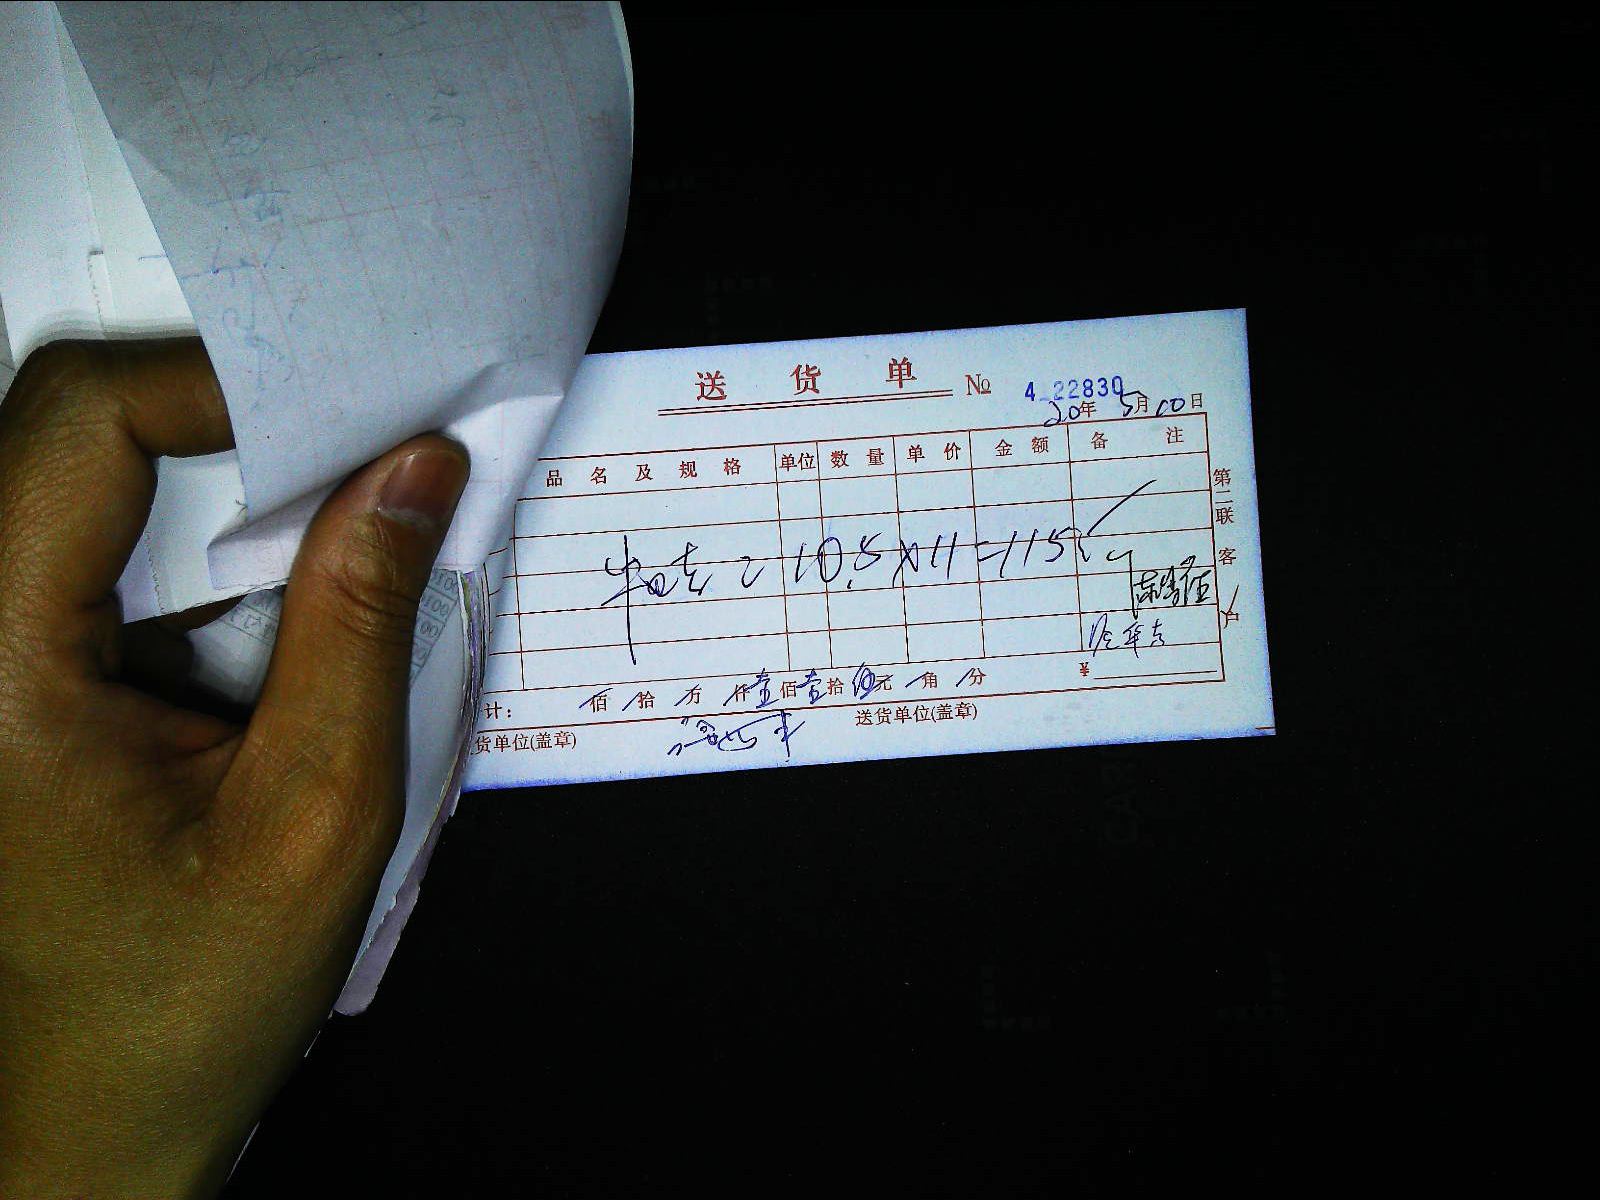 送 货 单 № 4 22830
20年 5月10日
品 名 及 规 格 单位 数 量 单 价 金 额 备 注
10.5×11=115
计： 佰 拾 万 仟壹佰壹拾伍元 角 分 ¥
货单位(盖章) 送货单位(盖章)
第二联 客户